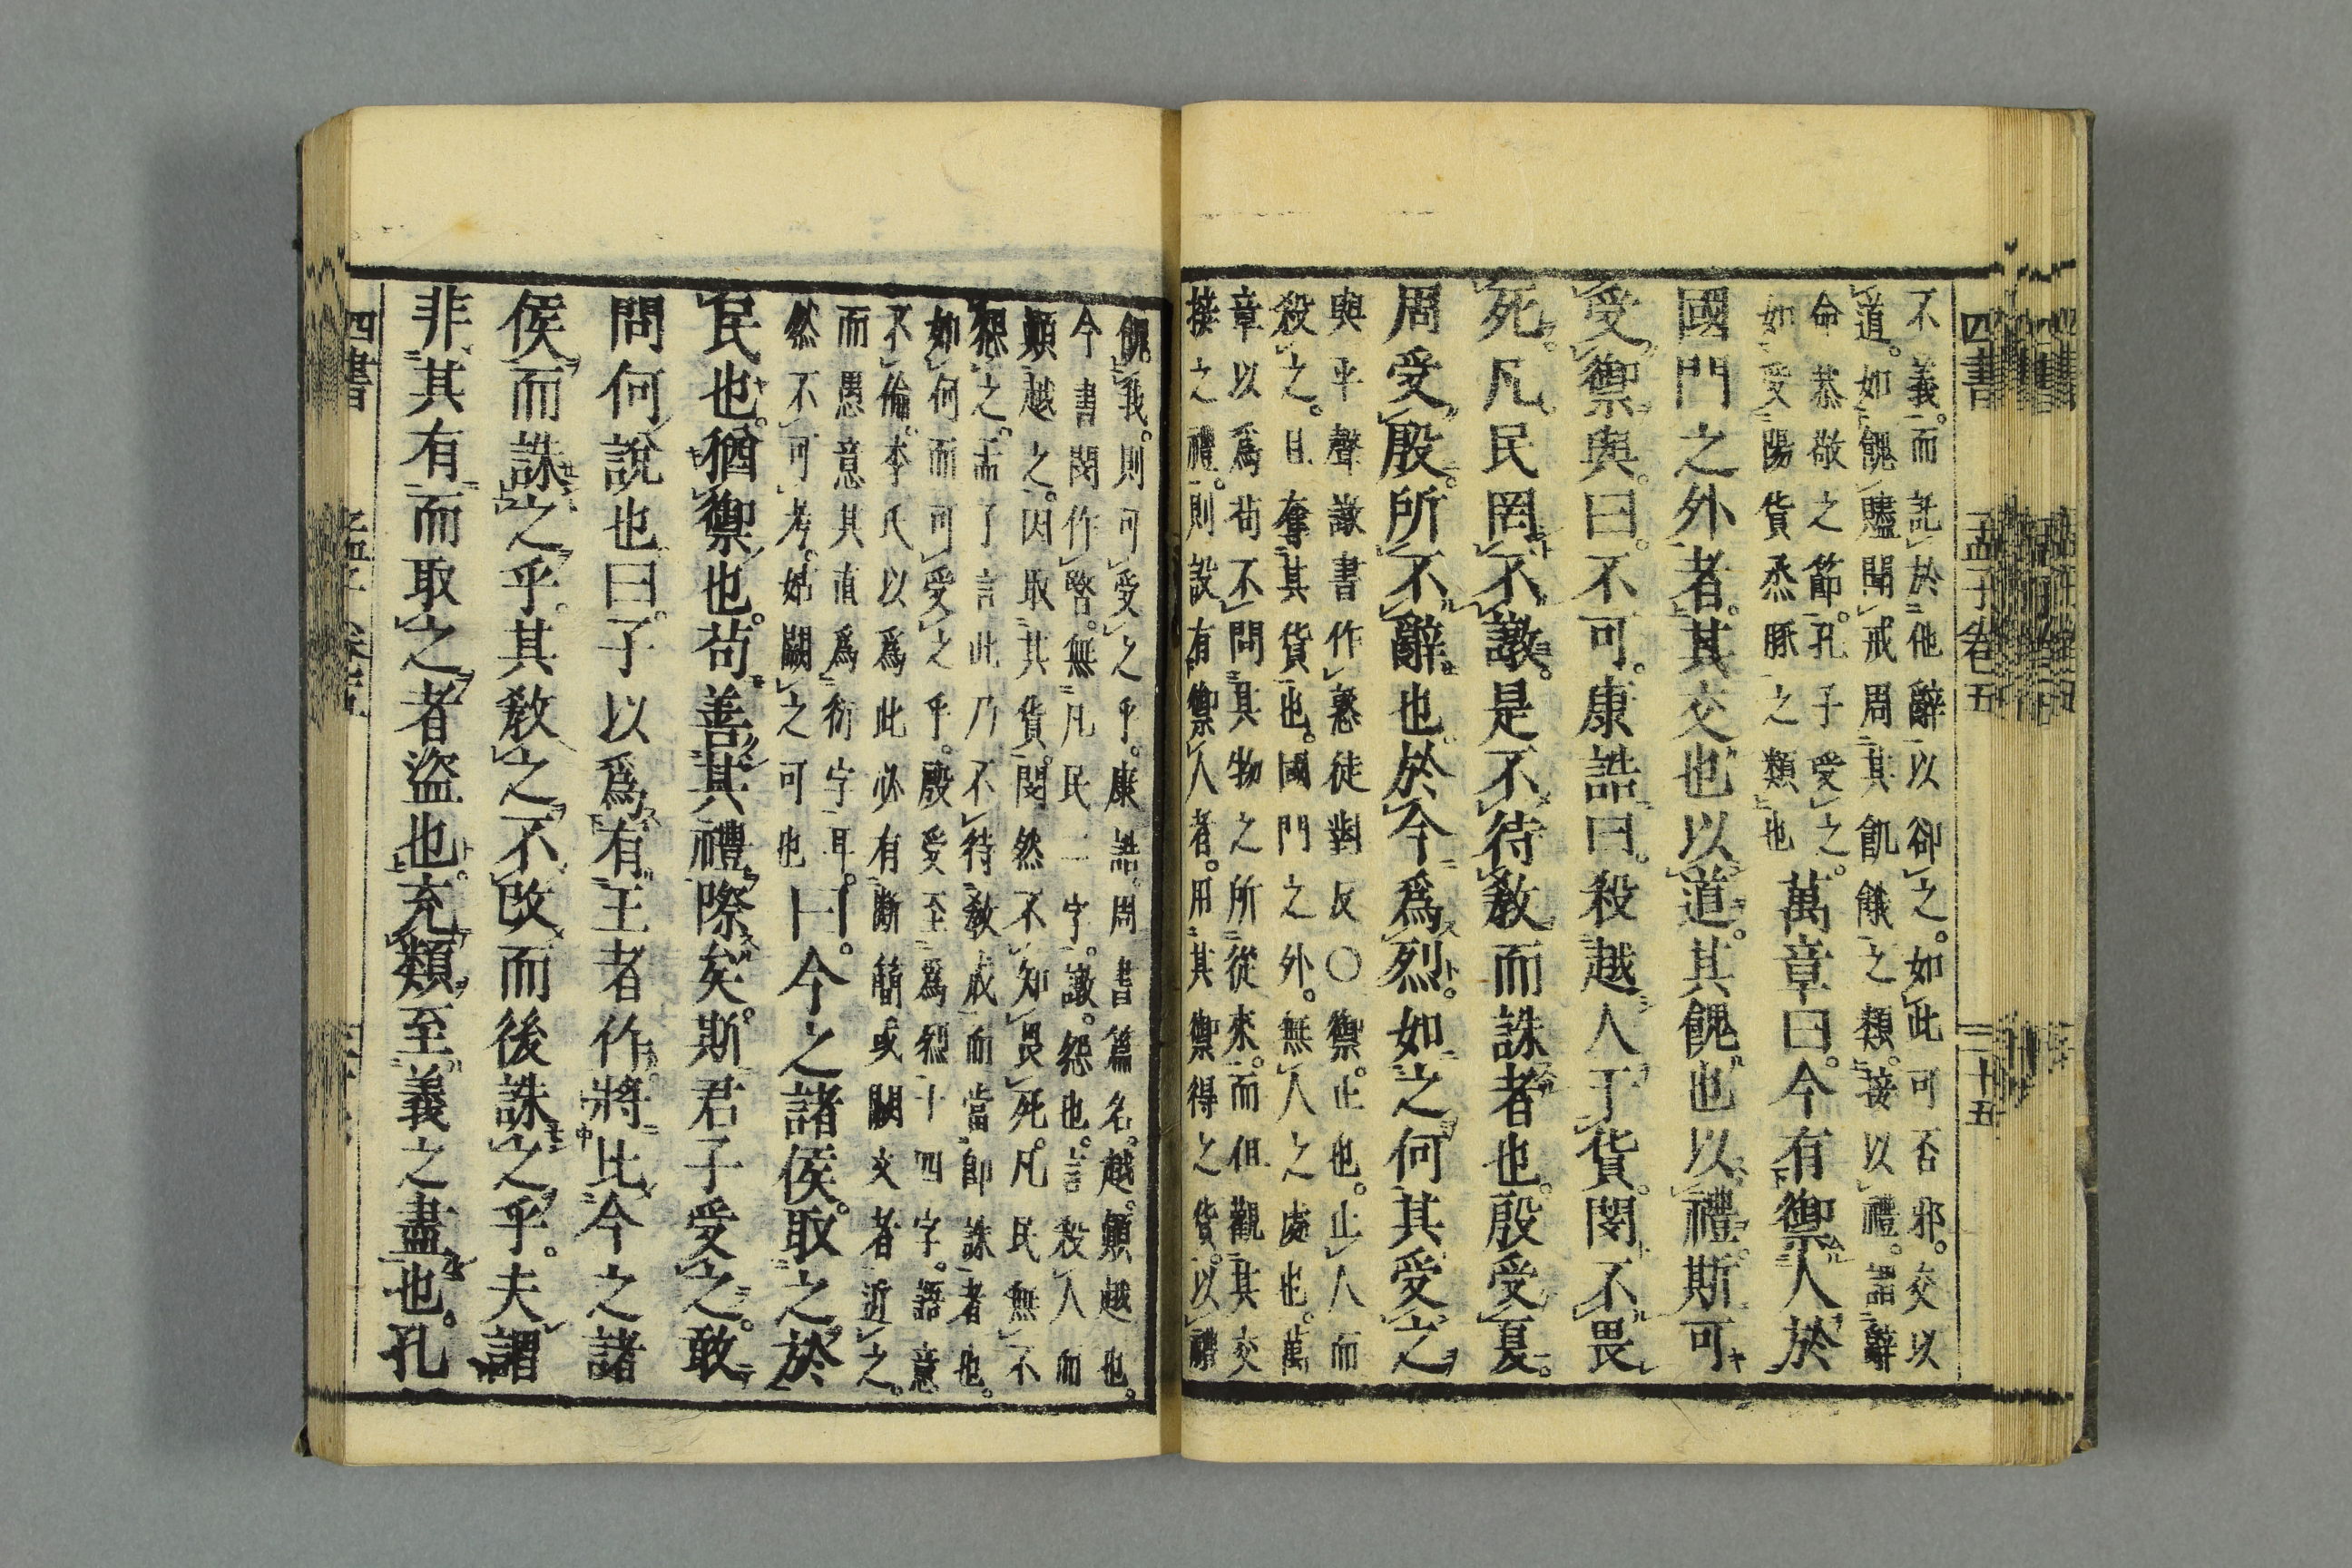 四書 孟子卷五 三十五
不義而託於他辭以卻之。如此可否邪。交以
道。如餽贐聞戒周其飢餓之類。接以禮。謂辭
命恭敬之節。孔子受之。
如受陽貨烝豚之類也
萬章曰。今有禦人於
國門之外者。其交也以道。其餽也以禮。斯可
受禦與。曰。不可。康誥曰。殺越人于貨。閔不畏
死。凡民罔不譈。是不待敎而誅者也。殷受夏。
周受殷。所不辭也。於今爲烈。如之何其受之
與平聲譈書作憝徒對反○禦。止也。止人而
殺之。且奪其貨也。國門之外。無人之處也。萬
章以爲苟不問其物之所從來。而但觀其交
接之禮。則設有禦人者。用其禦得之貨。以禮
餽我。則可受之乎。康誥。周書篇名。越。顚越也。
今書閔作暋。無凡民二字。譈。怨也。言殺人而
顚越之。因取其貨。閔然不知畏死。凡民無不
怨之。孟子言此乃不待敎戒而當卽誅者也。
如何而可受之乎。殷受至爲烈十四字。語意
不倫。李氏以爲此必有斷簡或闕文者近之。
而愚意其直爲衍字耳。
然不可考。姑闕之可也
曰。今之諸侯。取之於
民也。猶禦也。苟善其禮際矣。斯君子受之。敢
問何說也。曰。子以爲有王者作。將比今之諸
侯而誅之乎。其敎之不改而後誅之乎。夫謂
非其有而取之者盜也。充類至義之盡也。孔
四書